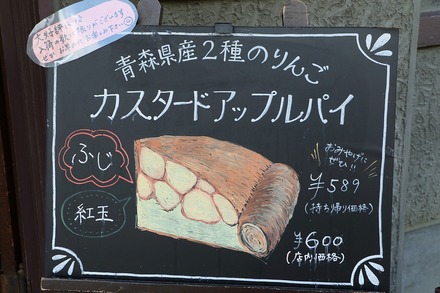 青森県産2種のりんご
カスタードアップルパイ
ふじ
紅玉
おみやげに
ぜひ!!
¥589
(持ち帰り価格)
¥600
(店内価格)